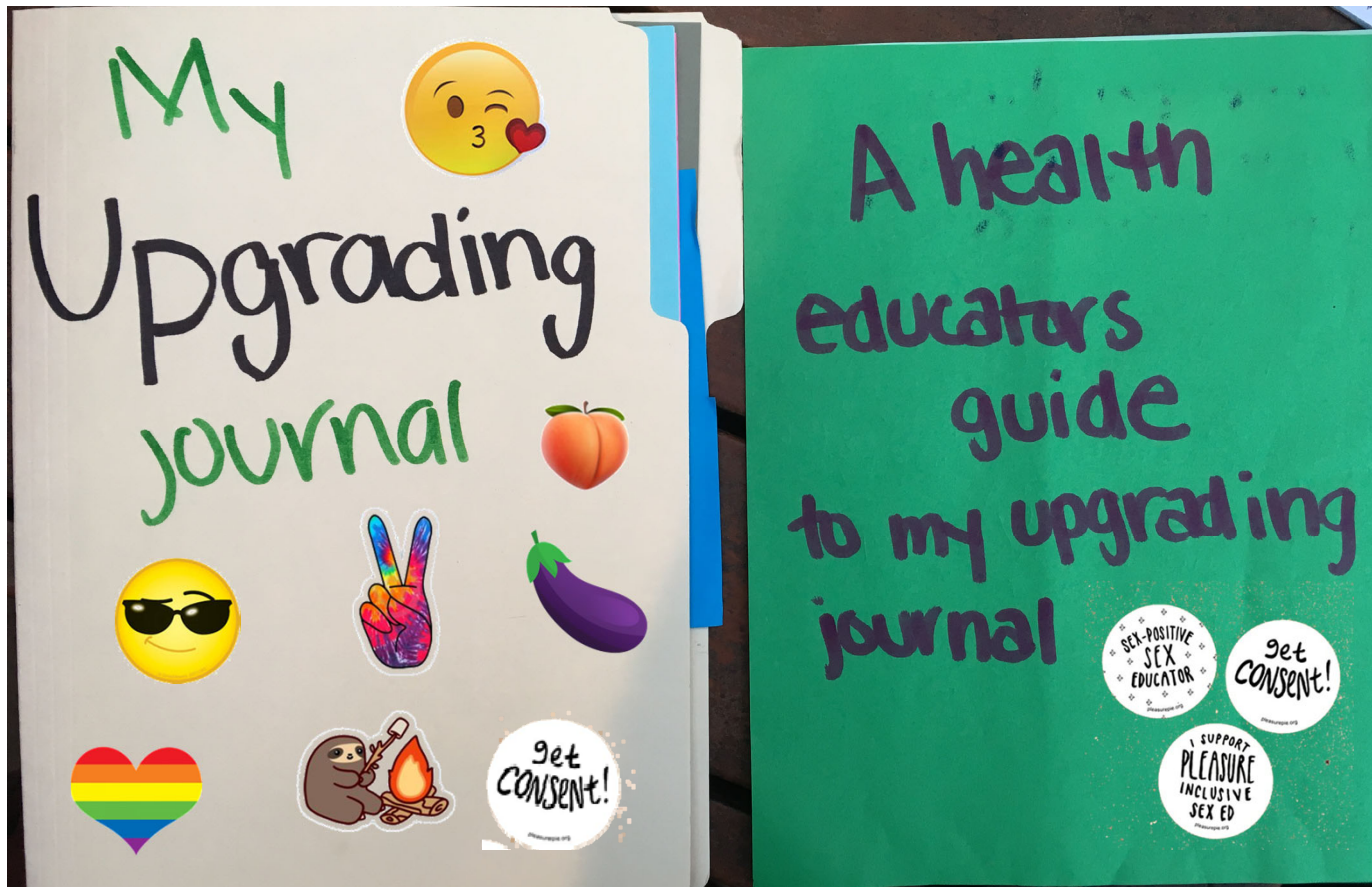 My
Upgrading
journal
get
CONSENT!
pleasurepie.org
A health
educators
guide
to my upgrading
journal
SEX-POSITIVE
SEX
EDUCATOR
pleasurepie.org
get
CONSENT!
pleasurepie.org
I SUPPORT
PLEASURE
INCLUSIVE
SEX ED
pleasurepie.org